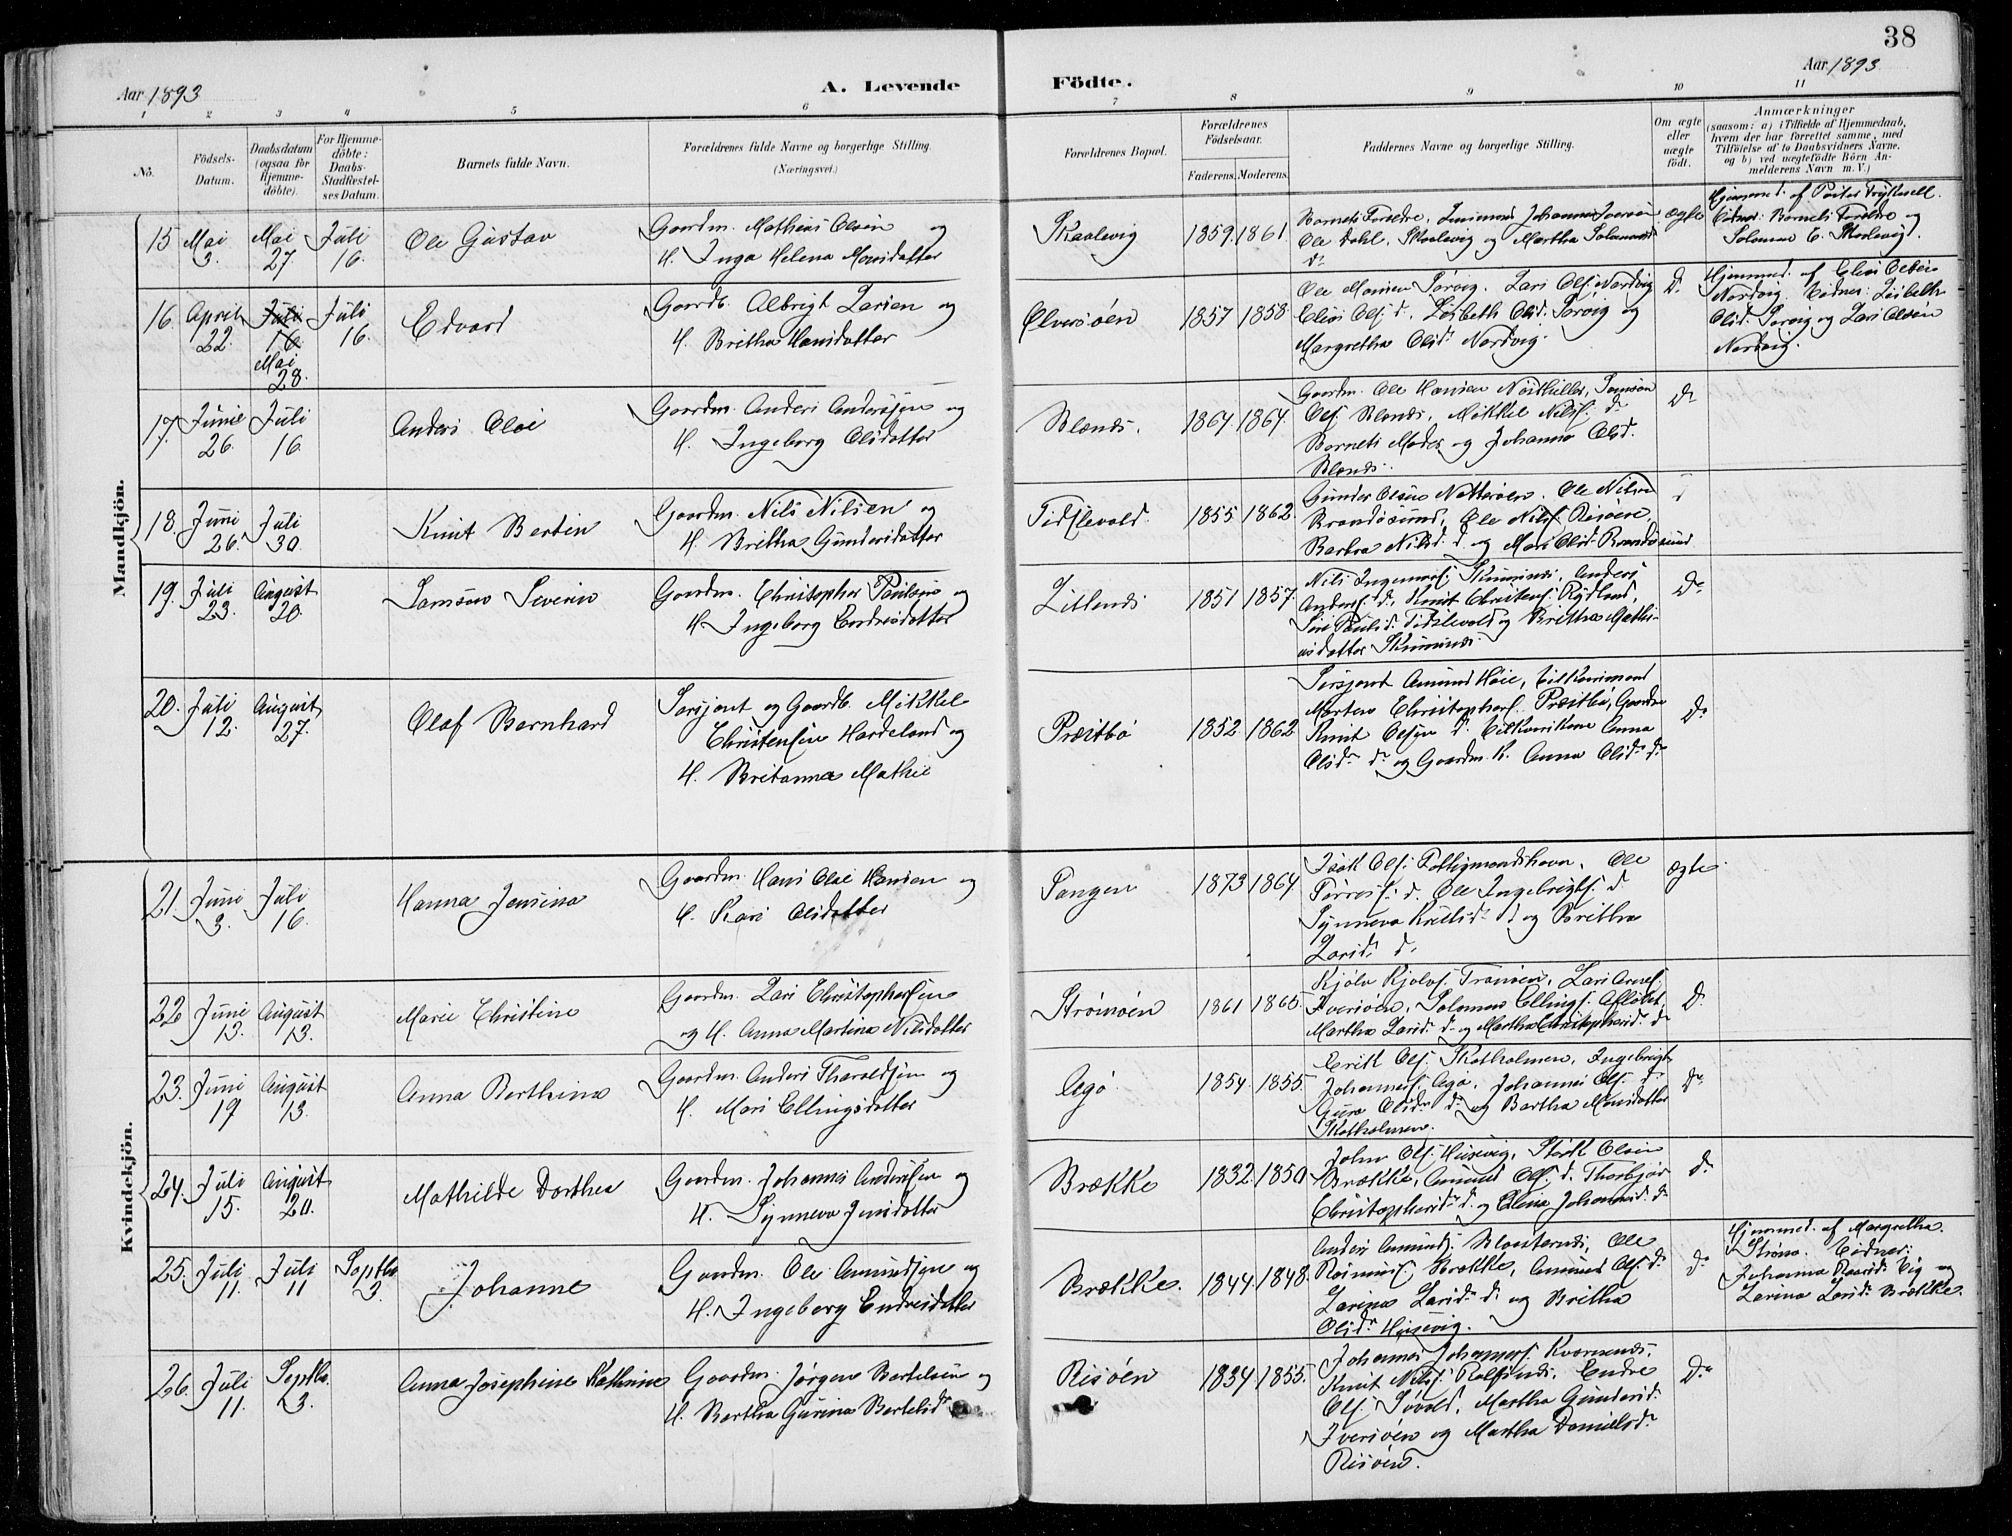 38
Aar 1893
A. Levende
Födte.
Aar 1893
1 2 3 4 5 6 7 8 9 10 11
No.
Födsels-Datum.
Daabsdatum (ogsaa for Hjemme-döbte).
For Hjemme-döbte: Daabs-Stadfæstel-ses Datum.
Barnets fulde Navn.
Forældrenes fulde Navne og borgerlige Stilling.
(Næringsvei.)
Forældrenes Bopæl.
Forældrenes Födselsaar.
Faderens. Moderens.
Faddernes Navne og borgerlige Stilling.
Om ægte eller uægte födt.
Anmærkninger
(saasom: a) i Tilfælde af Hjemmedaab,
hvem der har forrettet samme, med
Tilföielse af to Daabsvidners Navne,
og b) ved uægtefödte Börn An-
melderens Navn m. V.)
Mandkjön.
15 Mai 3. Mai 27. Juli 16. Ole Gustav
Gaardm. Mathias Olsen og
H. Inga Helena Monsdatter
Skaalevig 1859. 1861.
Barnets Forældre, Johannes Iversen
Ole Dahl, Skaalevig og Martha
ægte
Hjemmed. af
Vidner: Barnets Forældre og
Salomon E. Skaalevig.
16. April 22. Juli 16. Mai 28. Juli 16. Edvard
Gaardb. Albrigt Larsen og
H. Britha Hansdatter
1857 1858
Ole Monsen Sørvig. Lars Olsf. Nordvig
Elias Olsf. d. Lisbeth Olsd. Sørvig og
Margretha Olsd. Nordvig.
D.
Hjemmed. af Elias Olsen
Nordvig. Vidner: Lisbeth
Olsd. Sørvig og Lars Olsen
Nordvig.
17. Junie 26. Juli 16. Anders Olai
Gaardm. Anders Andersen og
H. Ingeborg Olsdatter
1864. 1864.
Gaardm. Ole Hansen
Olsf. Mikkel Nilsf. d.
Barnets Moder og Johanna Olsd.
D.
18. Juni 26. Juli 30. Knut Bertin
Gaardm. Nils Nilsen og
H. Britha Gundersdatter
Tidslevold. 1855 1862.
Gunder Olsen Ole Nilsen
Brandøsund, Ole Nilsf. Risøen,
Barbra Nilsd. d. og Mari Olsd. Brandøsund
19. Juli 23. August 20. Samson Severin
Gaardm. Christopher Paulsen og
H. Ingeborg Endresdatter
1851 1857.
Nils Ingemansf. Anders
Andersf. d., Knut Christensf. Rydland,
Siri Paulsd. Tidslevold og Britha Mathi-
asdatter
D.
20. Juli 12. August 27. Olaf Bernhard
Sersjant og Gaardb. Mikkel
Christensen Hardeland og
H. Britanna Mathie
Præstbø 1852. 1862
Sersjant Amund Høie,
Morten Christophersf. Præstbø,
Knut Olsen d. Anna
Olsd. d. og Gaardm. K. Anna Olsd. d.
D.
Kvindekjön.
21. Juni 3. Juli 16. Hanna Jensina
Gaardm. Hans Olai Hansen og
H. Kari Olsdatter
Tangen 1873 1864.
Isak Olsf. Fattigmandshavn. Ole
d. Ole Ingebrigtsf. d
Synneva d. og Britha
Larsd. d.
ægte
22 Juni 13. August 13. Marie Christine
Gaardm. Lars Christophersen
og H. Anna Martina Nilsdatter
Strømøen 1861 1865.
Kjølv Kjølvsf. Tranøen, Lars Arnesf.
Iversøen, Salomon Ellingsf.
Martha Larsd. d. og Martha Christophersd. d.
D.
23. Juni 19 August 13. Anna Berthina
Gaardm. Anders Tharaldsen og
H. Mari Ellingsdatter
Agø 1854. 1855.
Erik Olsf. Skotholmen, Ingebrigt
Johannesf. Agø, Johannes Olsf. d.
Guro Olsd. d. og Bertha Monsdatter
Skotholmen.
D.
24. Juli 15. August 20. Mathilde Dorthea
Gaardm. Johannes Andersen og
H. Synneva Jensdatter
Brække 1832. 1850
John Olsf. Husevig, Størk Olsen
Brække, Amund Olsf. d. Thorbjør
Christophersd. d. og Eline Johannesd. d.
d.
25. Juli 11. Juli 11 Septbr 3. Johanne
Gaardm. Ole Amundsen og
H. Ingeborg Endresdatter
Brække. 1844. 1848.
Anders Amundsf. Ole
Brække, Amund Olsf. d.
Larina Larsd. d. og Britha
Olsd. Husevig.
D.
Hjemmed. af Margretha
Strøno. Vidner:
Johanna og
Larina Larsd. Brække.
26. Juli 11. Septbr. 3. Anna Josephine Kathrine
Gaardm. Jørgen Bertelsen og
H. Bertha Gurina Bertelsd.
Risøen 1834 1855.
Johannes Johannesf. Kvernenes,
Knut Nilsf. Rolfsnes, Endre
Olsf. Martha Gundersd.
Iversøen og Martha Danielsd.
Risøen.
D.